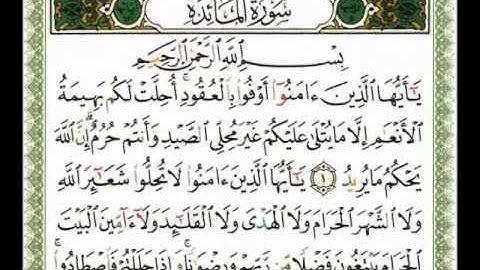 سُورَةُ المَائِدَة
بِسْمِ ٱللَّهِ ٱلرَّحْمَٰنِ ٱلرَّحِيمِ
يَٰٓأَيُّهَا ٱلَّذِينَ ءَامَنُوٓا۟ أَوْفُوا۟ بِٱلْعُقُودِ ۚ أُحِلَّتْ لَكُم بَهِيمَةُ
ٱلْأَنْعَٰمِ إِلَّا مَا يُتْلَىٰ عَلَيْكُمْ غَيْرَ مُحِلِّى ٱلصَّيْدِ وَأَنتُمْ حُرُمٌ ۗ إِنَّ ٱللَّهَ
يَحْكُمُ مَا يُرِيدُ ١ يَٰٓأَيُّهَا ٱلَّذِينَ ءَامَنُوا۟ لَا تُحِلُّوا۟ شَعَٰٓئِرَ ٱللَّهِ
وَلَا ٱلشَّهْرَ ٱلْحَرَامَ وَلَا ٱلْهَدْىَ وَلَا ٱلْقَلَٰٓئِدَ وَلَآ ءَآمِّينَ ٱلْبَيْتَ
ٱلْحَرَامَ يَبْتَغُونَ فَضْلًا مِّن رَّبِّهِمْ وَرِضْوَٰنًا ۚ وَإِذَا حَلَلْتُمْ فَٱصْطَادُوا۟ ۚ